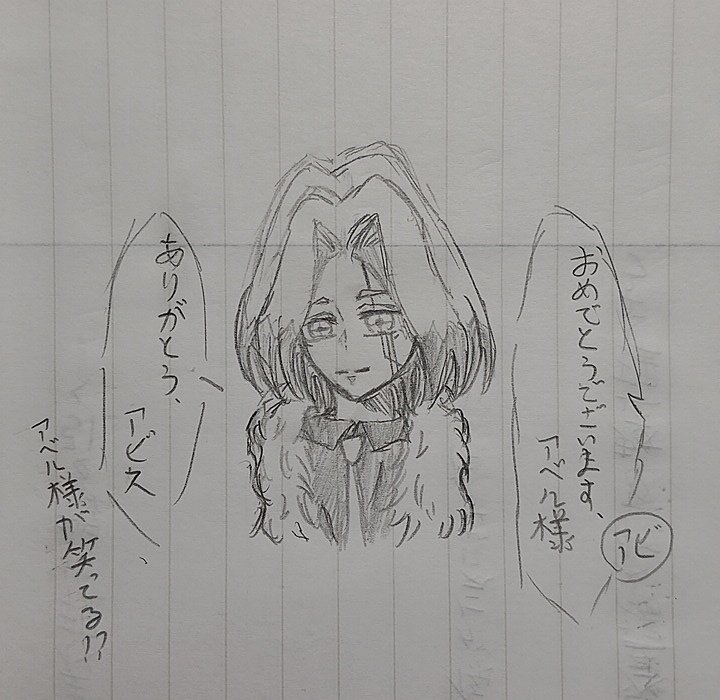 おめでとうでざいます、
アベル様
アビ
ありがとう、
アビス
アベル様が笑ってる!?